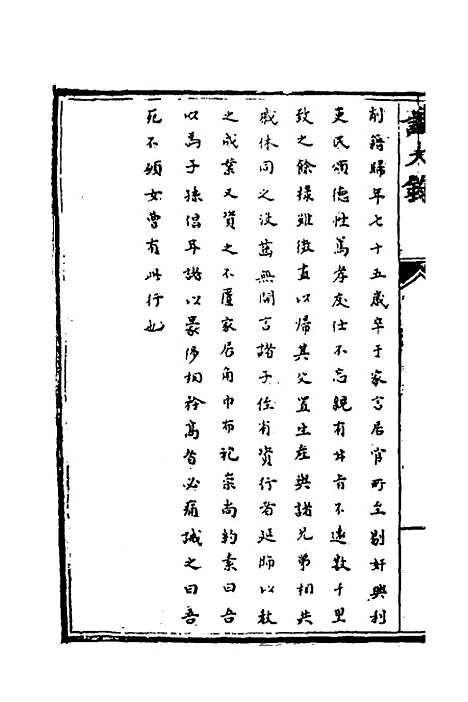 削籍歸年七十五歲卒于家言居官所至剔奸興利
吏民頌德性篤孝友仕不忘親有甘旨不遠數千里
致之餘祿雖微直以歸其父置生產與諸兄弟相共
戚休同之沒齒無間言諸子侄有資行者延師以教
之成業又資之不匱家居角巾布袍崇尚約素曰吾
以為子孫倡耳諸以豪侈相矜高者必痛誡之曰吾
死不願女曹有此行也